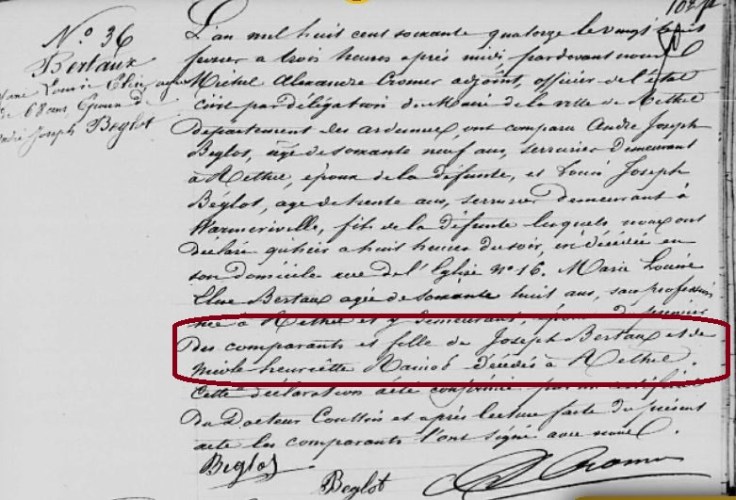 102
N° 36
Bertaux
Marie Louise Elise agée
de 68 ans, Epouse de
André Joseph Beglot
L'an mil huit cent soixante quatorze le vingt trois
février a trois heures après midi, pardevant nous
Michel Alexandre Cromer adjoint, officier de l'état
civil par délégation du Maire de la ville de Rethel
département des ardennes, ont comparu André Joseph
Beglot, âgé de soixante neuf ans, serrurier demeurant
à Rethel, époux de la défunte, et Louis Joseph
Béglot, agé de trente ans, serrurier demeurant à
Warmeriville, fils de la défunte lesquels nous ont
déclaré qu'hier a huit heures du soir, est décédée en
son domicile rue de l'Eglise n° 16. Marie Louise
Elise Bertaux agée de soixante huit ans, sans profession
née à Rethel et y demeurant, épouse du premier
des comparants et fille de Joseph Bertaux et de
nicole henriette décédés à Rethel.
Cette déclaration a été confirmée par un certificat
du Docteur et après lecture faite du présent
acte les comparants l'ont signé avec nous.
Beglot
Beglot
A Cromer